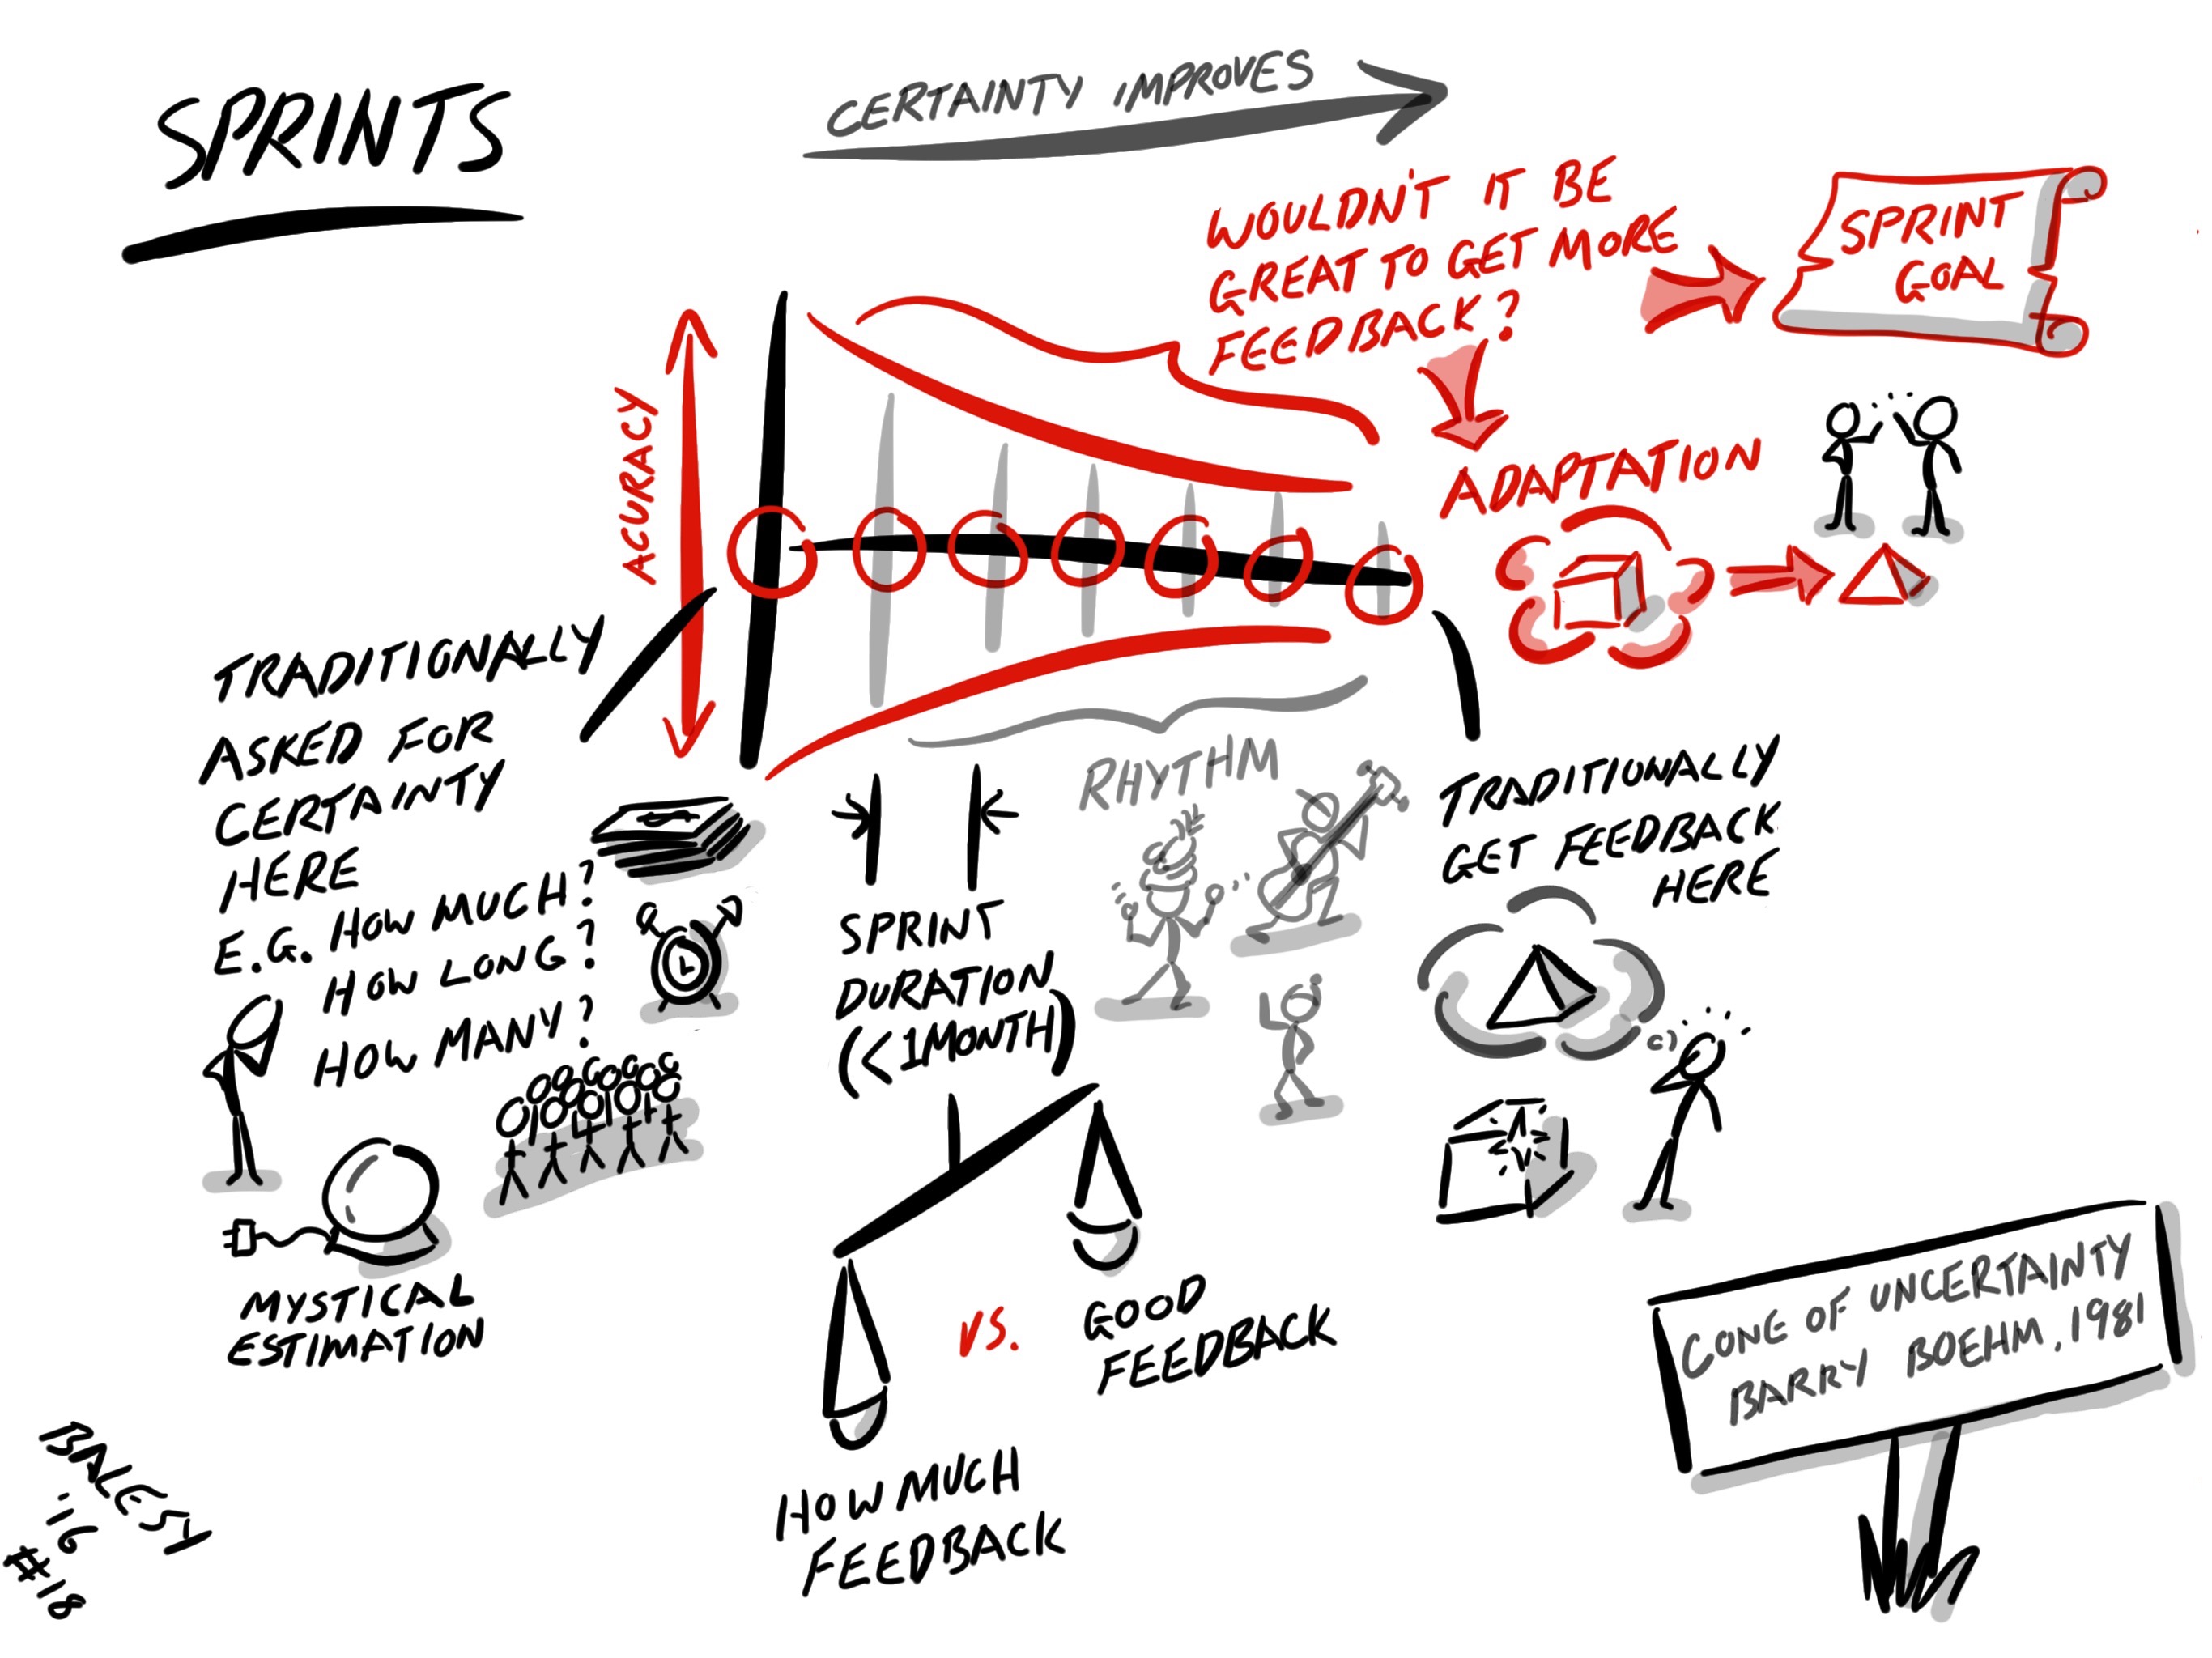 SPRINTS
CERTAINTY IMPROVES
WOULDN'T IT BE
GREAT TO GET MORE
FEEDBACK?
SPRINT
GOAL
ACCURACY
ADAPTATION
TRADITIONALLY
ASKED FOR
CERTAINTY
HERE
E.G. HOW MUCH?
HOW LONG?
HOW MANY?
MYSTICAL
ESTIMATION
SPRINT
DURATION
(<1 MONTH)
RHYTHM
TRADITIONALLY
GET FEEDBACK
HERE
VS.
GOOD
FEEDBACK
HOW MUCH
FEEDBACK
CONE OF UNCERTAINTY
BARRY BOEHM, 1981
BALESY
'16
#18